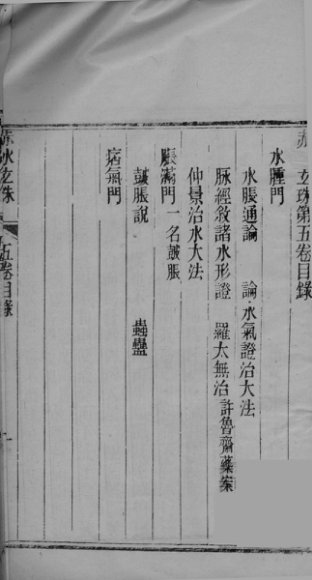 赤 玄珠第五卷目錄
水腫門
水脹通論 論水氣證治大法
脉經敘諸水形證 羅太無治許魯齋藥案
仲景治水大法
脹滿門 一名皷脹
皷脹說 蟲蠱
痞氣門
赤水玄珠 五卷目錄 一